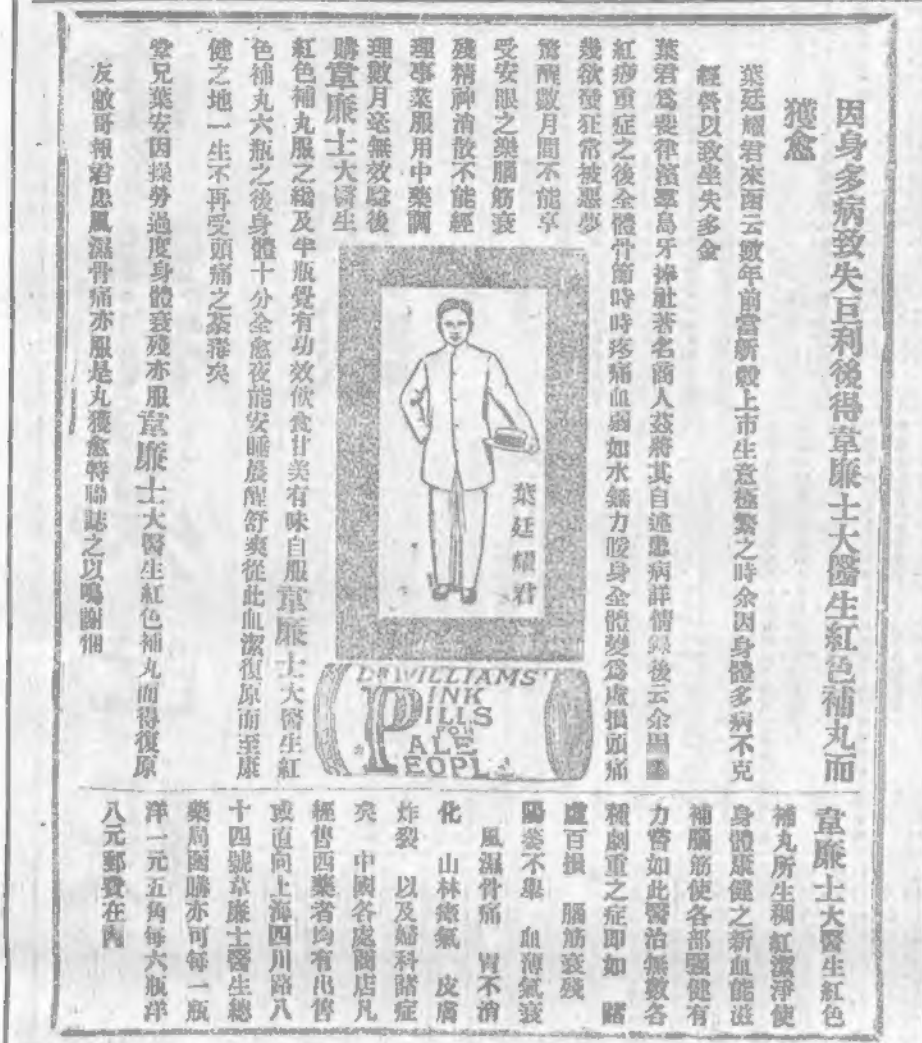 因身多病致失巨利後得韋廉士大醫生紅色補丸而
獲愈
葉廷耀君來函云數年前當新穀上市生意極繁之時余因身體多病不克
經營以致坐失多金
葉君爲斐律濱羣島牙捧社著名商人茲將其自述患病詳情錄後云余
紅痧重症之後全體骨節時時疼痛血弱如水無力暖身全體變爲虛損頭痛
幾欲發狂常被惡夢
驚醒數月間不能享
受安眠之樂腦筋衰
殘精神消散不能經
理事業服用中藥調
理數月毫無效驗後
購韋廉士大醫生
紅色補丸服之纔及半瓶覺有功效飲食甘美有味自服韋廉士大醫生紅
色補丸六瓶之後身體十分全愈夜能安睡晨醒舒爽從此血潔復原而至康
健之地一生不再受頭痛之荼毒矣
堂兄葉安因操勞過度身體衰殘亦服韋廉士大醫生紅色補丸而得復原
友敝哥報君患風濕骨痛亦服是丸獲愈特聯誌之以鳴謝悃
葉廷耀君
DR WILLIAMS'
PINK
PILLS
FOR
PALE
PEOPLE
韋廉士大醫生紅色
補丸所生稠紅潔淨使
身體康健之新血能滋
補腦筋使各部强健有
力嘗如此醫治無數各
種劇重之症即如 諸
虛百損 腦筋衰殘
陽萎不舉 血薄氣衰
風濕骨痛 胃不消
化 山林瘴氣 皮膚
炸裂 以及婦科諸症
矣 中國各處商店凡
經售西藥者均有出售
或直向上海四川路八
十四號韋廉士醫生總
藥局函購亦可每一瓶
洋一元五角每六瓶洋
八元郵費在內